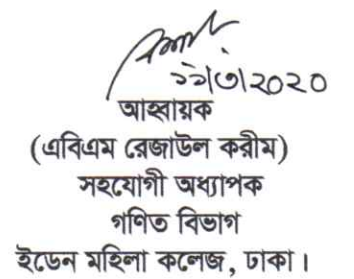 ১১|৩|২০২০
আহ্বায়ক
(এবিএম রেজাউল করীম)
সহযোগী অধ্যাপক
গণিত বিভাগ
ইডেন মহিলা কলেজ, ঢাকা।